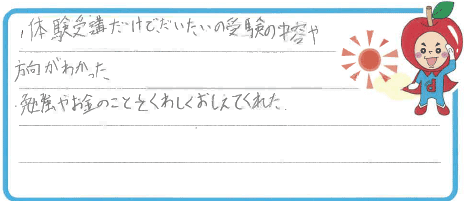 ・体験受講だけでだいたいの受験の内容や
方向がわかった
・勉強やお金のことをくわしくおしえてくれた.
d